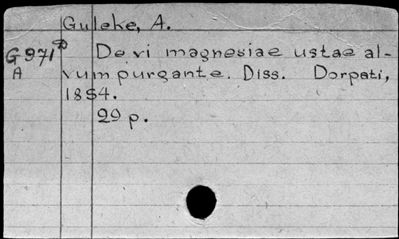 Guleke, A.
G971 De vi magnesiae ustae al-
A vum purgante. Diss. Dorpati,
1854.
29 p.